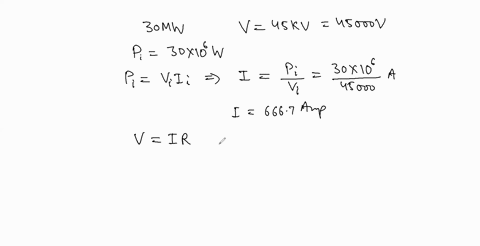 30MW V = 45KV = 45000V
Pi = 30×10⁶ W
Pi = Vi Ii ⇒ I = Pi/Vi = 30×10⁶/45000 A
I = 666.7 Amp
V = IR